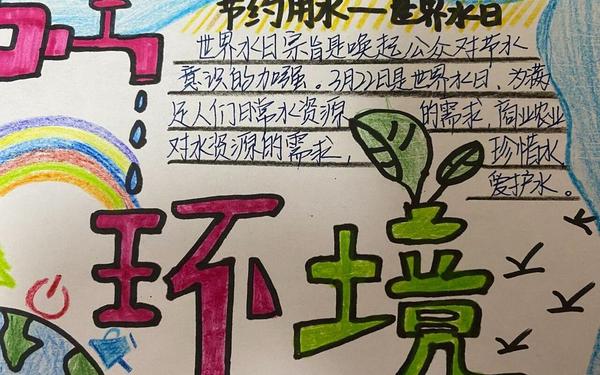 节约用水—世界水日
世界水日宗旨是唤起公众对节水
意识的加强。3月22日是世界水日、为满
足人们日常水资源的需求、商业农业
对水资源的需求，珍惜水，
爱护水。
环境